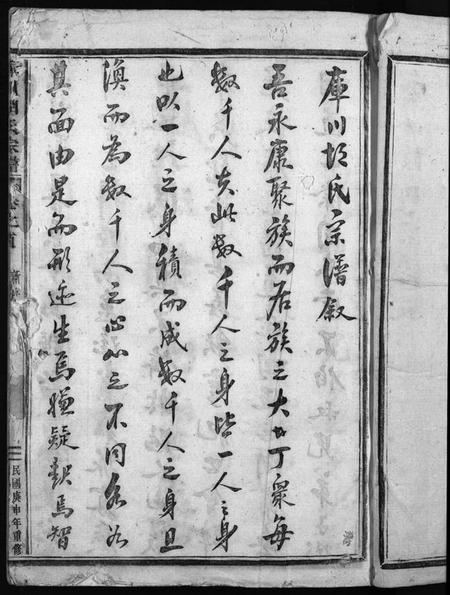 庫川胡氏宗譜叙
吾永康聚族而居族之大者丁衆每
數千人夫此數千人之身皆一人之身
也以一人之身積而成數千人之身且
渙而為數千人之心心之不同各如
其面由是而形迹生焉嫌疑起焉智
庫川胡氏宗譜 卷之首
民國庚申年重修